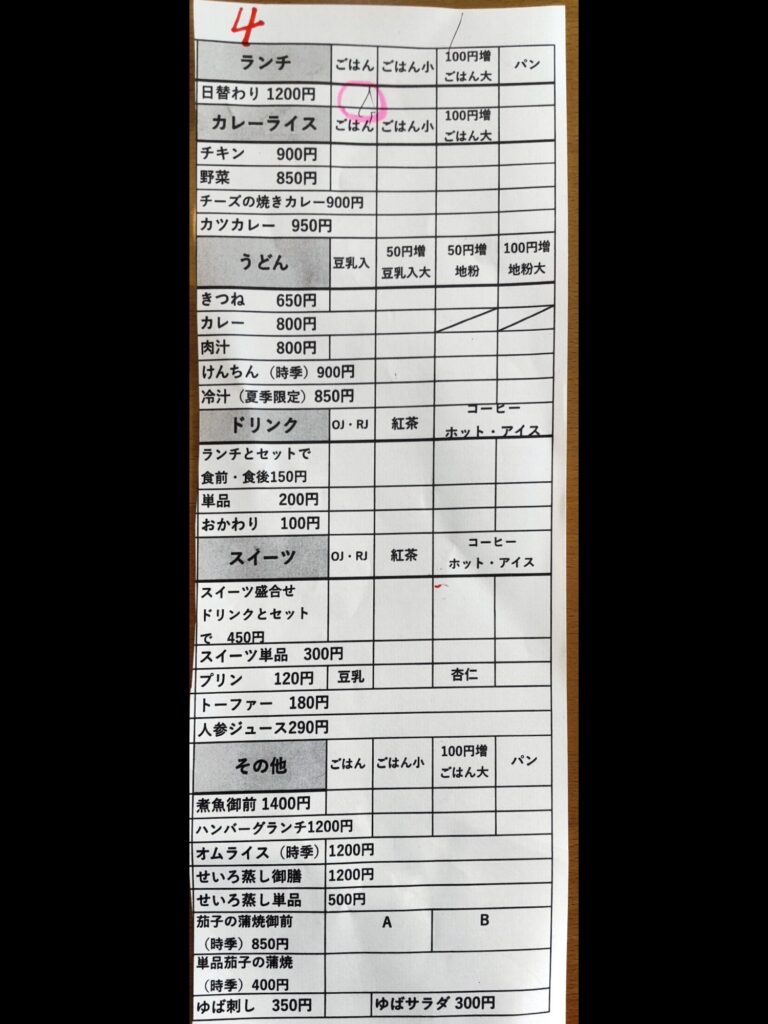 4
ランチ ごはん ごはん小 100円増 ごはん大 パン
日替わり 1200円
カレーライス ごはん ごはん小 100円増 ごはん大
チキン 900円
野菜 850円
チーズの焼きカレー900円
カツカレー 950円
うどん 豆乳入 50円増 豆乳入大 50円増 地粉 100円増 地粉大
きつね 650円
カレー 800円
肉汁 800円
けんちん（時季）900円
冷汁（夏季限定）850円
ドリンク OJ・RJ 紅茶 コーヒー ホット・アイス
ランチとセットで
食前・食後150円
単品 200円
おかわり 100円
スイーツ OJ・RJ 紅茶 コーヒー ホット・アイス
スイーツ盛合せ
ドリンクとセット
で 450円
スイーツ単品 300円
プリン 120円 豆乳 杏仁
トーファー 180円
人参ジュース290円
その他 ごはん ごはん小 100円増 ごはん大 パン
煮魚御前 1400円
ハンバーグランチ1200円
オムライス（時季）1200円
せいろ蒸し御膳 1200円
せいろ蒸し単品 500円
茄子の蒲焼御前 A B
（時季）850円
単品茄子の蒲焼
（時季）400円
ゆば刺し 350円 ゆばサラダ 300円